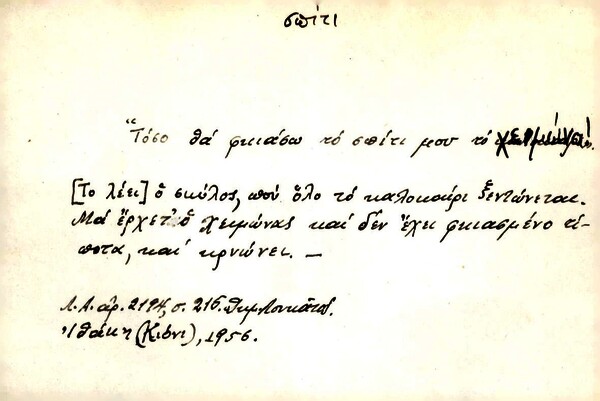 σπίτι
"Τόσο θά φκιάσω τό σπίτι μου τό
[Το λέει] ὁ σκύλος, πού ὅλο τό καλοκαίρι ξεντώνεται.
Μά ἔρχετ' ὁ χειμώνας καί δέν ἔχει φκιασμένο τί-
ποτα, καί κρυώνει. —
Λ.Α. ἀρ. 2194, σ. 216.
Ἰθάκη (Κιόνι), 1956.